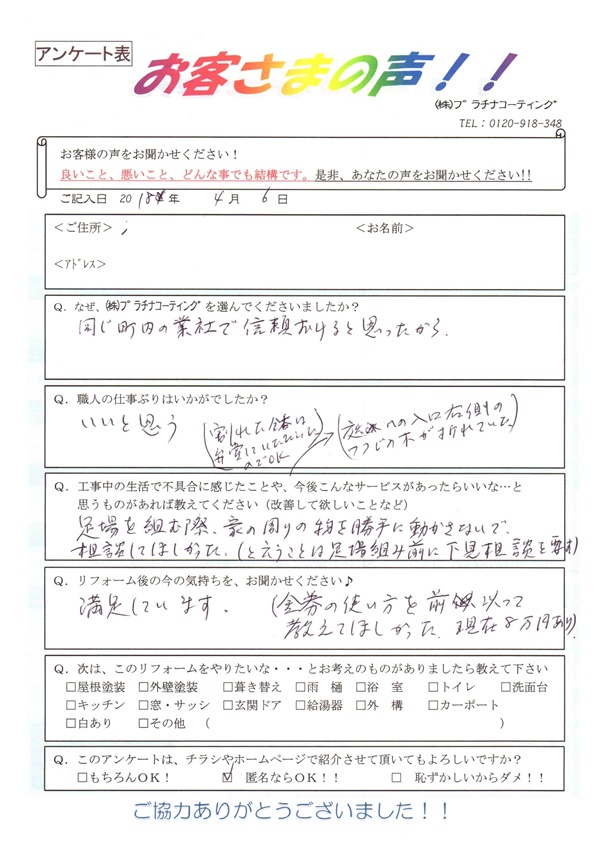 アンケート表
お客さまの声!!
㈱プラチナコーティング
TEL：0120-918-348
お客様の声をお聞かせください！
良いこと、悪いこと、どんな事でも結構です。是非、あなたの声をお聞かせください!!
ご記入日 2018年 4月 6日
＜ご住所＞ ＜お名前＞
＜アドレス＞
Q．なぜ、㈱プラチナコーティングを選んでくださいましたか？
同じ町内の業社で信頼おけると思ったから.
Q．職人の仕事ぶりはいかがでしたか？
いいと思う
(割れた食器は
弁償していただいた
のでOK
への入口右側の
つつじの木が折れていた)
Q．工事中の生活で不具合に感じたことや、今後こんなサービスがあったらいいな…と
思うものがあれば教えてください（改善して欲しいことなど）
足場を組む際、家の周りの物を勝手に動かさないで、
相談してほしかった.(と言うことは足場組み前に下見相談を要す)
Q．リフォーム後の今の気持ちを、お聞かせください♪
満足しています. (金券の使い方を前以って
教えてほしかった. 現在8万円あり)
Q．次は、このリフォームをやりたいな・・・とお考えのものがありましたら教えて下さい
□屋根塗装 □外壁塗装 □葺き替え □雨 樋 □浴 室 □トイレ □洗面台
□キッチン □窓・サッシ □玄関ドア □給湯器 □外 構 □カーポート
□白あり □その他 （ ）
Q．このアンケートは、チラシやホームページで紹介させて頂いてもよろしいですか？
□もちろんOK！ ☑ 匿名ならOK！！ □ 恥ずかしいからダメ！！
ご協力ありがとうございました！！